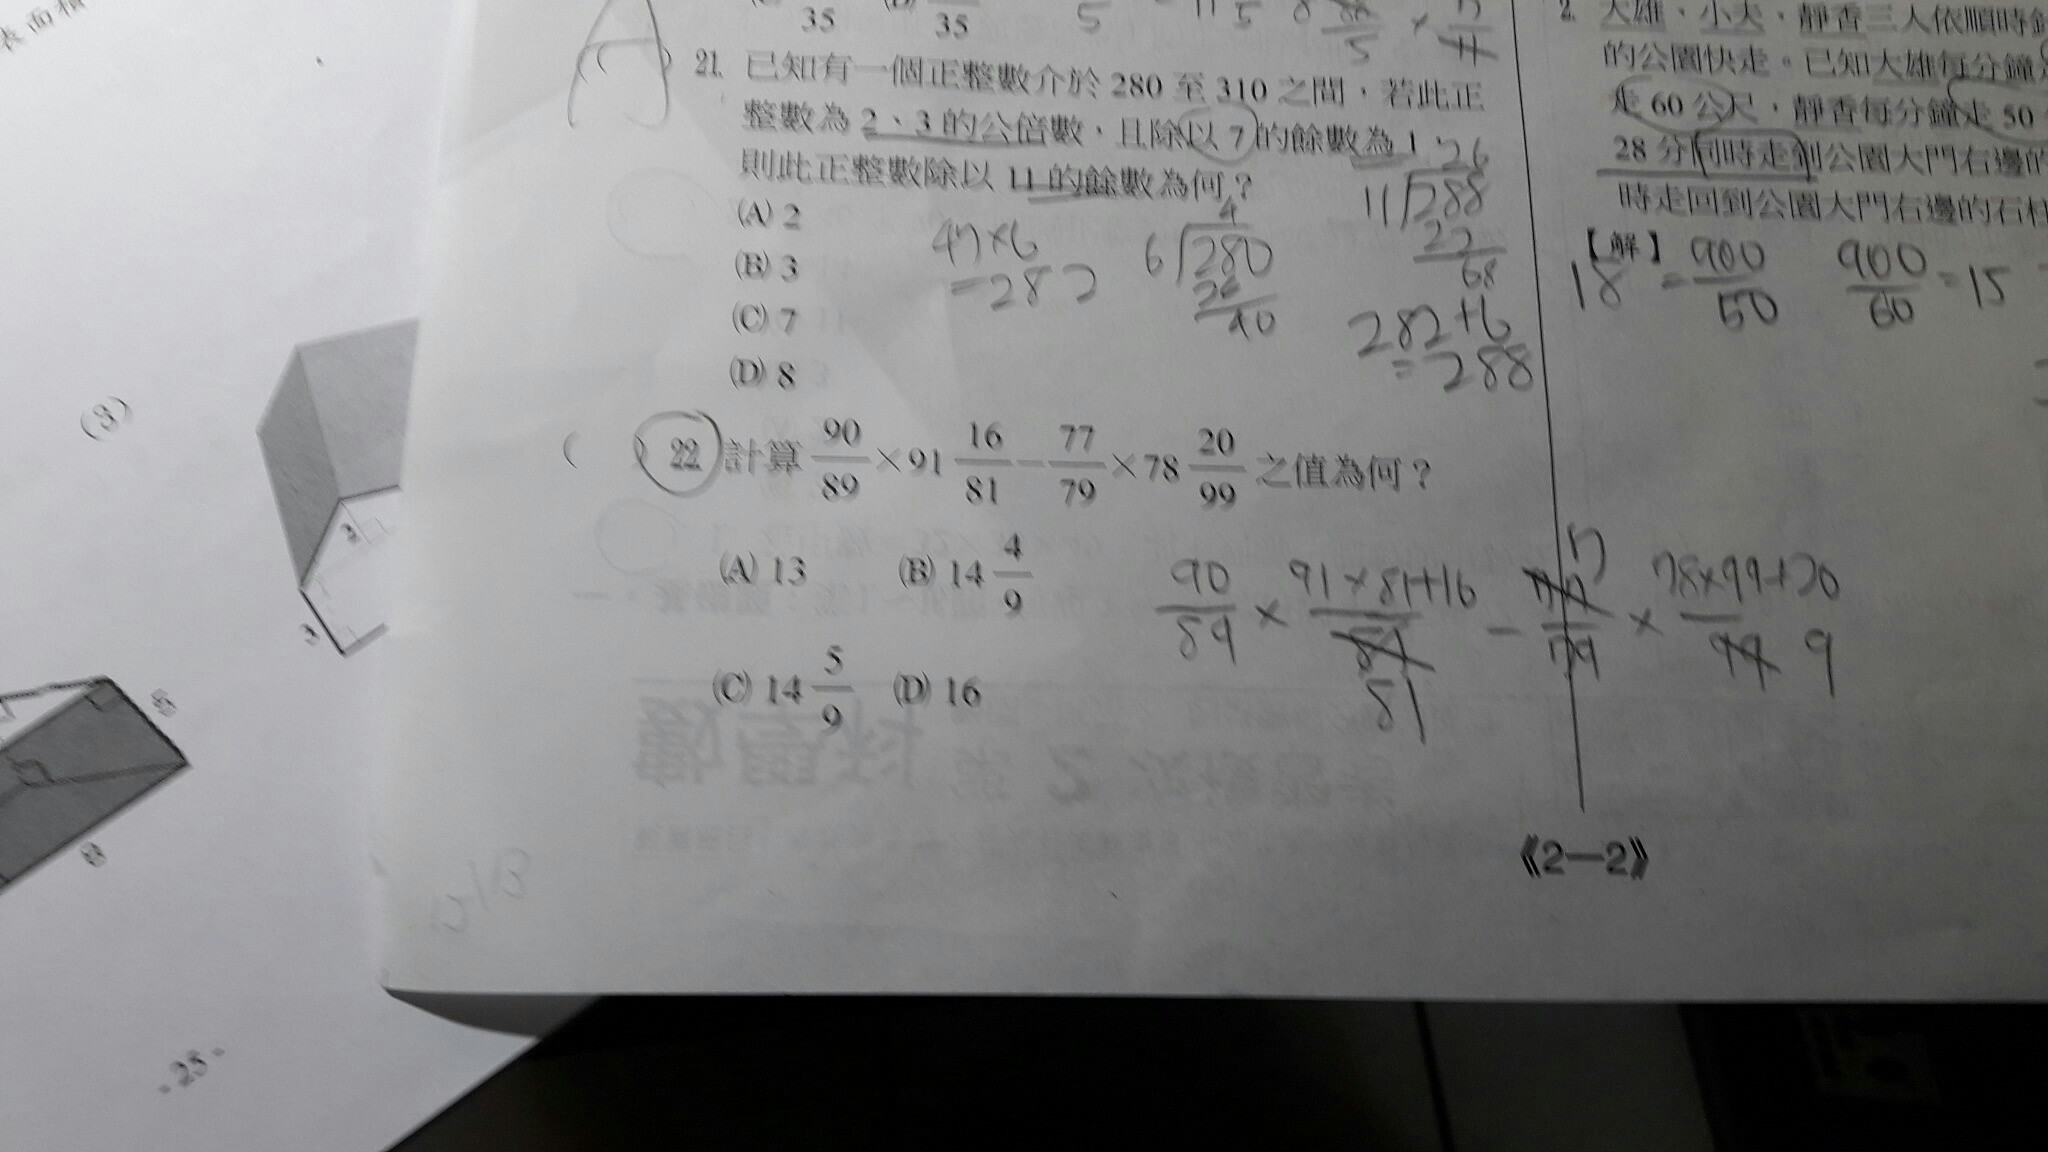 表面積
(3)
3
3
5
8
- 25 -
35
35
5
11 5
21. 已知有一個正整數介於 280 至 310 之間，若此正
整數為 2、3 的公倍數，且除以 7 的餘數為 1
則此正整數除以 11 的餘數為何？
(A) 2
(B) 3
(C) 7
(D) 8
47×6
=282
4
6 280
24
40
26
11 288
22
68
282+6
=288
( ) 22 計算 90/89 × 91 16/81 − 77/79 × 78 20/99 之值為何？
(A) 13 (B) 14 4/9
(C) 14 5/9 (D) 16
90/89 × 91×81+16/81 − 7/79 × 78×99+20/9
2. 大雄、小夫、靜香三人依順時
的公園快走。已知大雄每分鐘
走 60 公尺，靜香每分鐘走 50
28 分同時走到公園大門右邊的
時走回到公園大門右邊的石
【解】
18 = 900/50 900/60 = 15
《2—2》